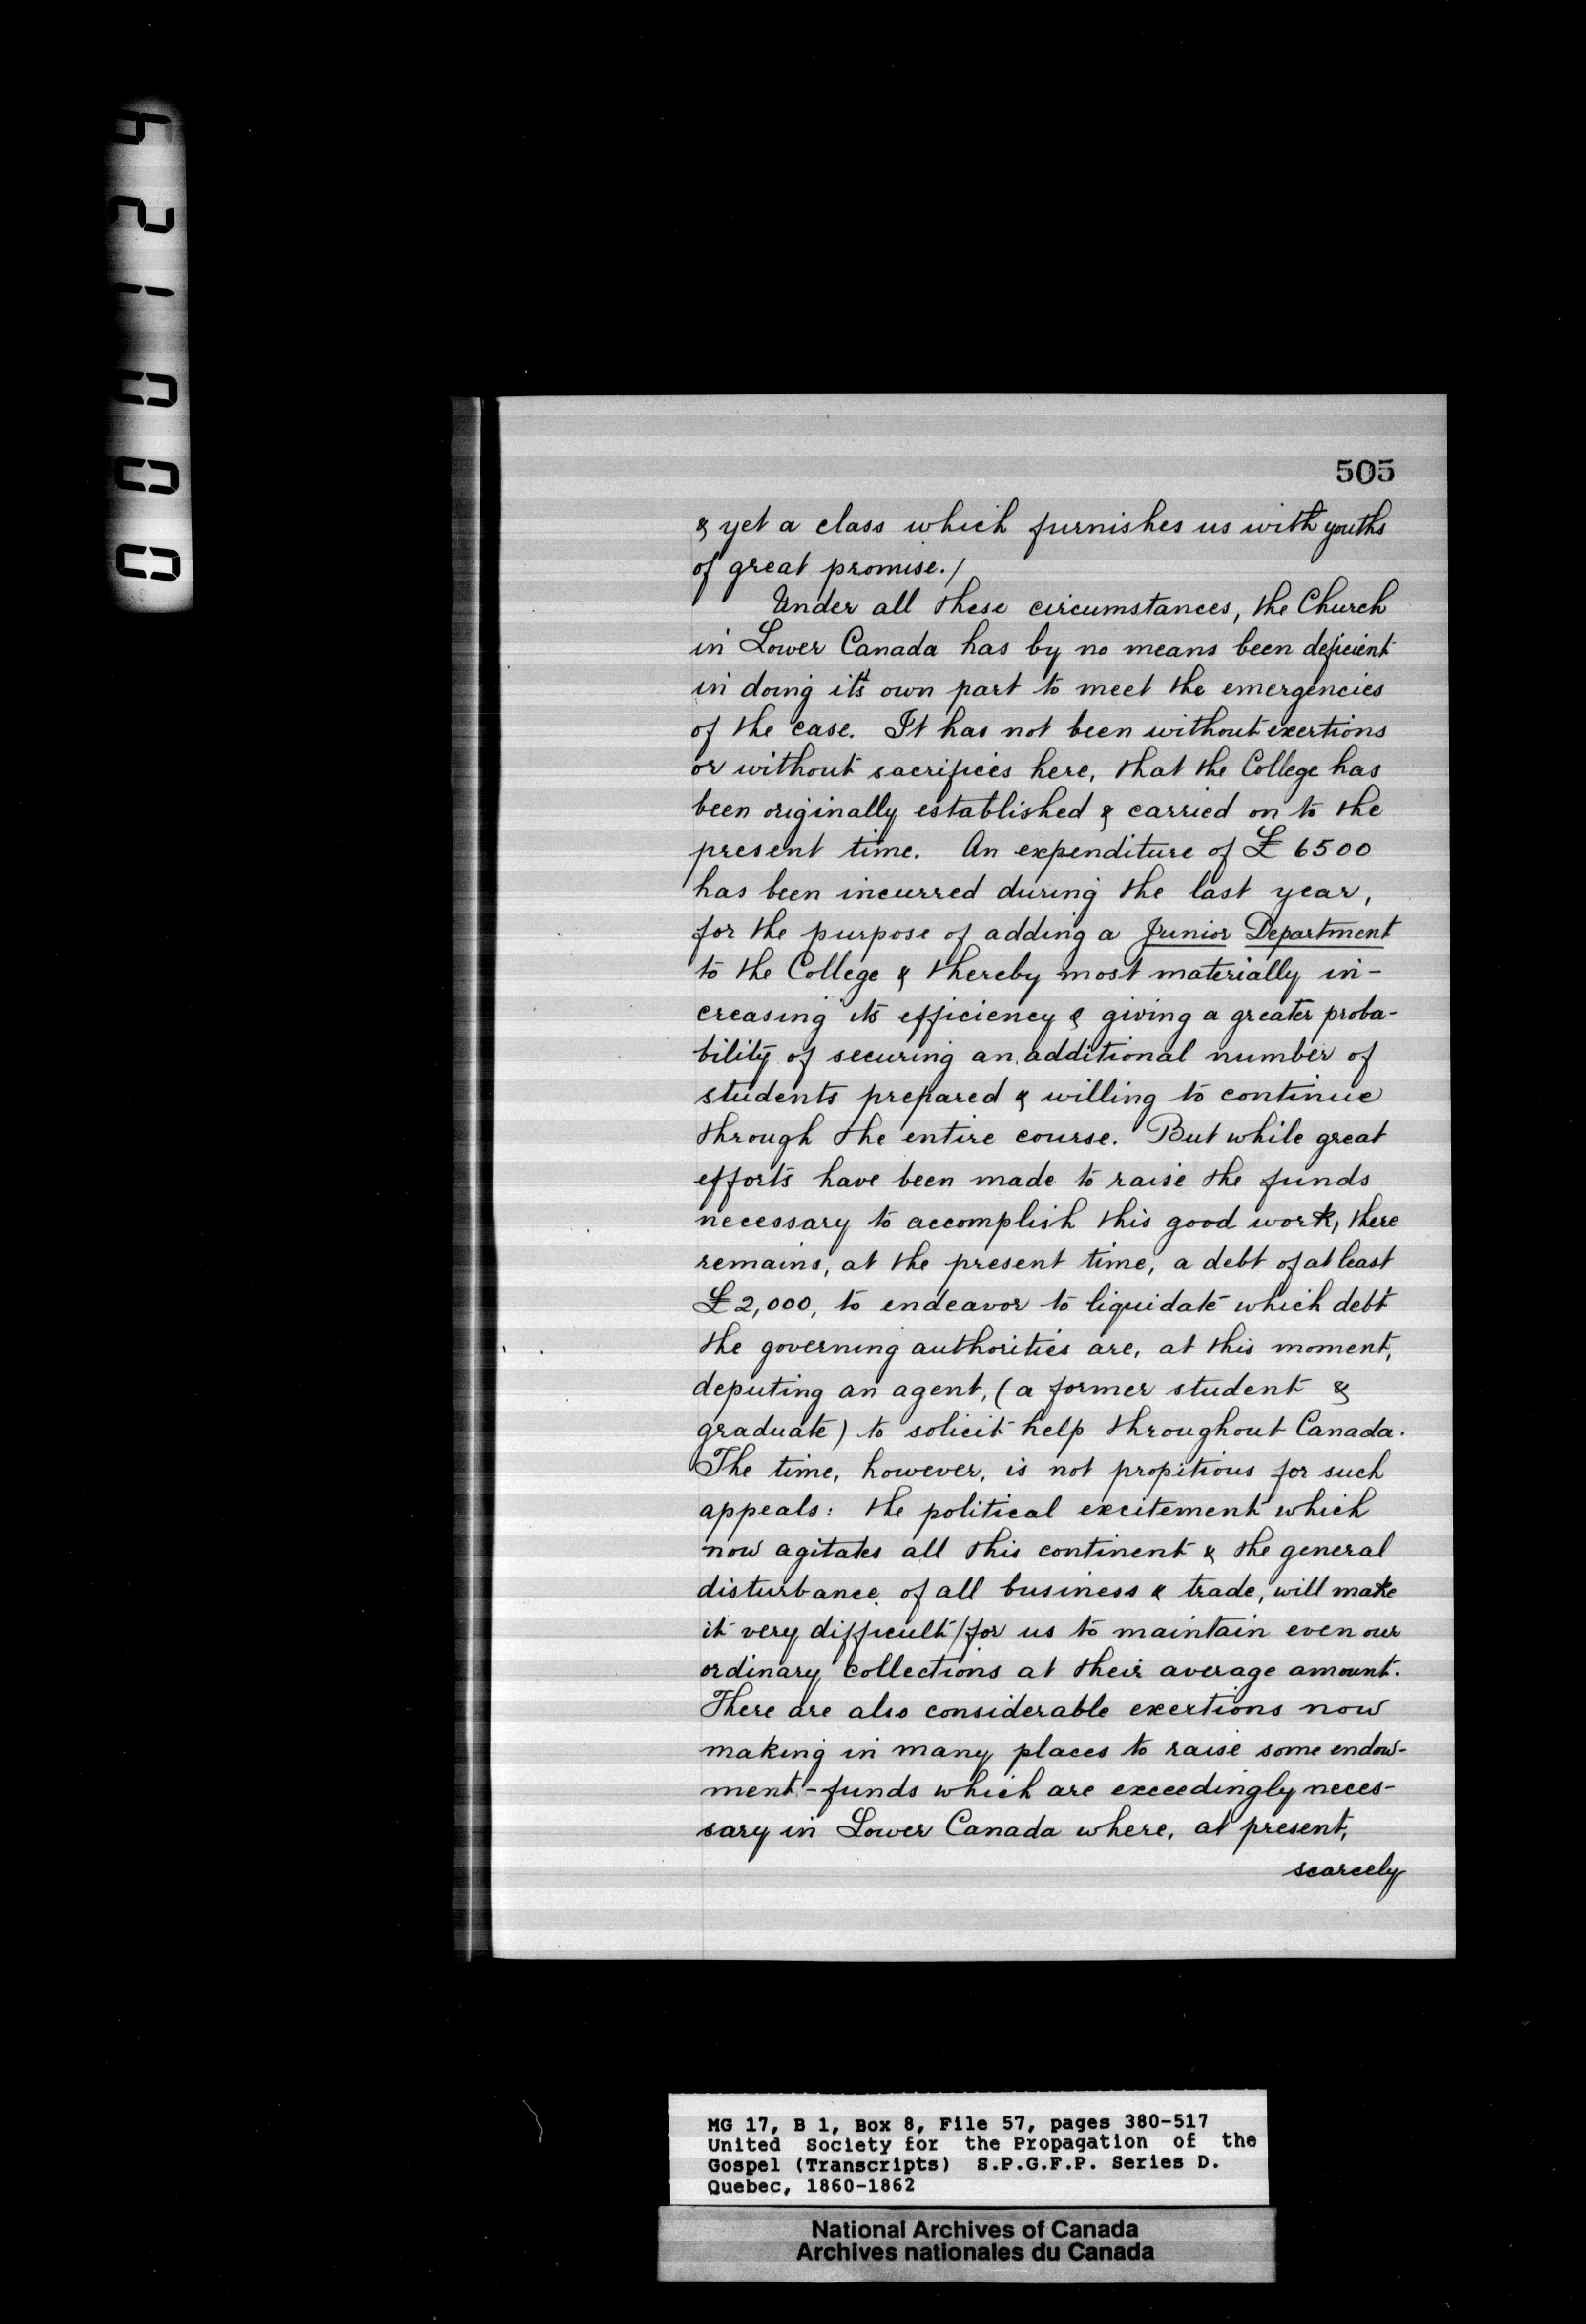 421000
505
& yet a class which furnishes us with youths
of great promise./
Under all these circumstances, the Church
in Lower Canada has by no means been deficient
in doing its own part to meet the emergencies
of the case. It has not been without exertions
or without sacrifices here, that the College has
been originally established & carried on to the
present time. An expenditure of £ 6500
has been incurred during the last year,
for the purpose of adding a Junior Department
to the College & thereby most materially in-
creasing its efficiency & giving a greater proba-
bility of securing an additional number of
students prepared & willing to continue
through the entire course. But while great
efforts have been made to raise the funds
necessary to accomplish this good work, there
remains, at the present time, a debt of at least
£2,000, to endeavor to liquidate which debt
the governing authorities are, at this moment,
deputing an agent, (a former student &
graduate) to solicit help throughout Canada.
The time, however, is not propitious for such
appeals: the political excitement which
now agitates all this continent & the general
disturbance of all business & trade, will make
it very difficult/for us to maintain even our
ordinary collections at their average amount.
There are also considerable exertions now
making in many places to raise some endow-
ment-funds which are exceedingly neces-
sary in Lower Canada where, at present,
scarcely
MG 17, B 1, Box 8, File 57, pages 380-517
United Society for the Propagation of the
Gospel (Transcripts) S.P.G.F.P. Series D.
Quebec, 1860-1862
National Archives of Canada
Archives nationales du Canada